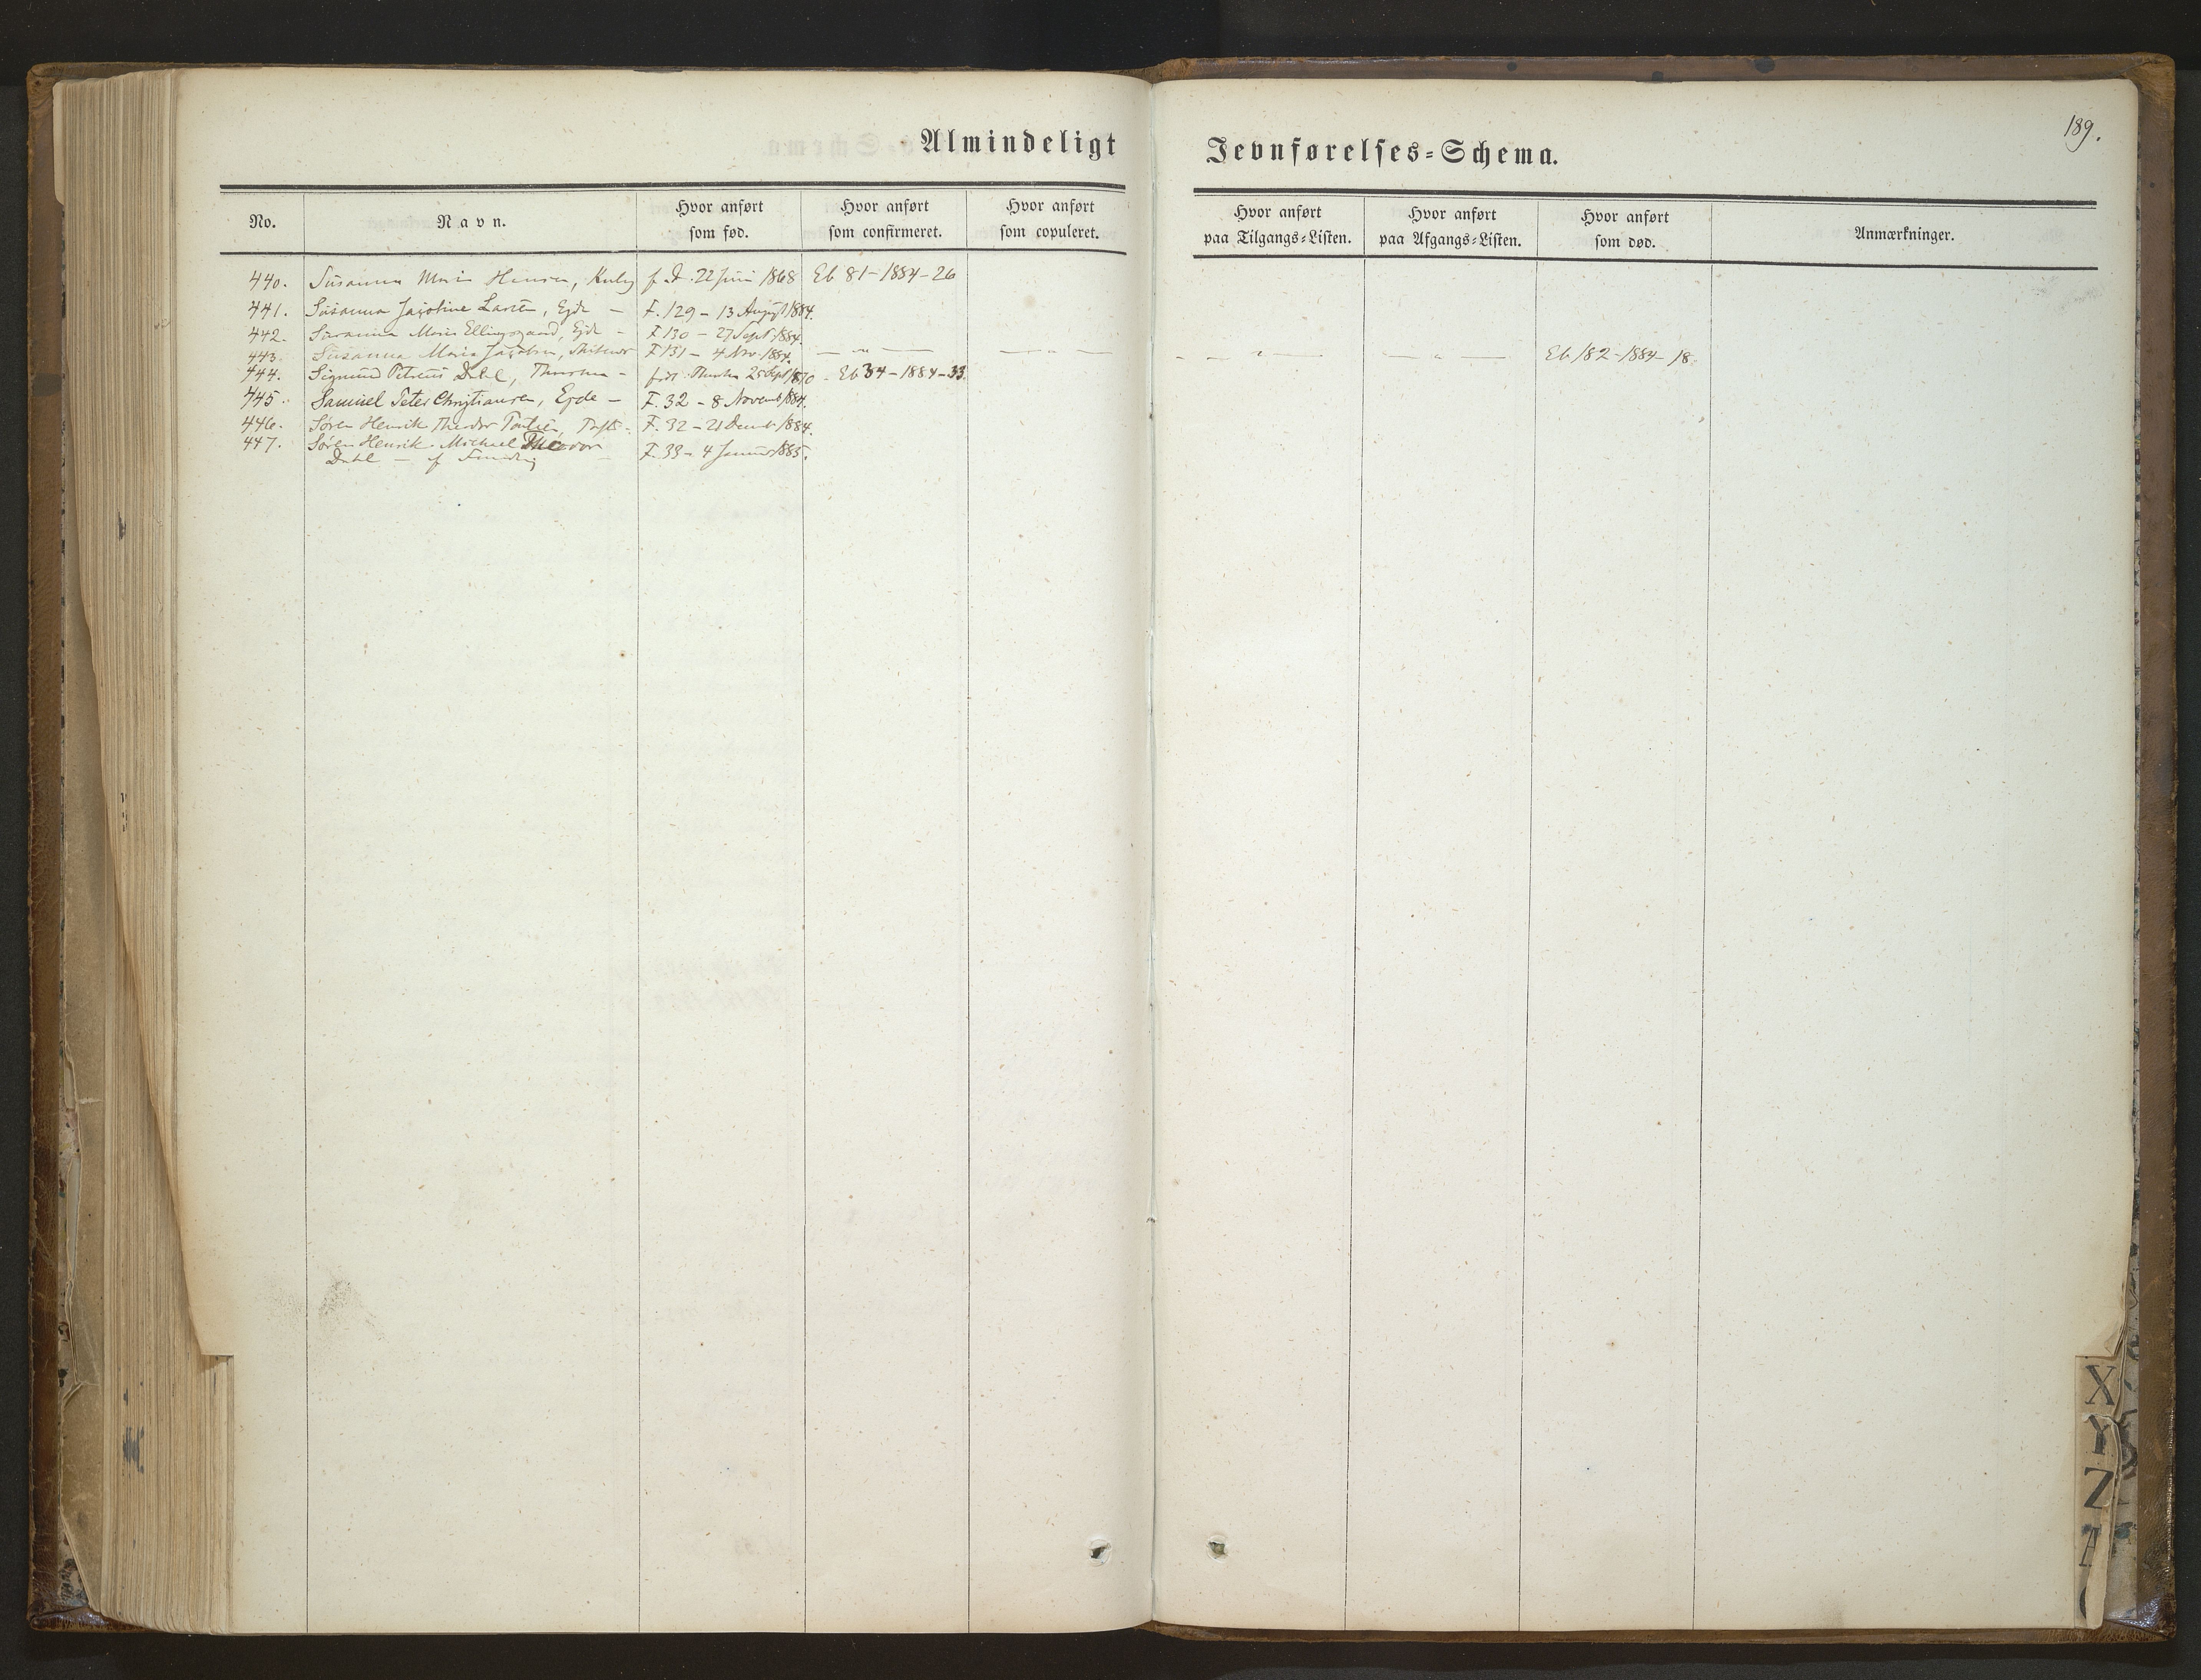 Almindeligt Jevnførelses-Schema.
189.
No. Navn. Hvor anført som fød. Hvor anført som confirmeret. Hvor anført som copuleret. Hvor anført paa Tilgangs-Listen. Hvor anført paa Afgangs-Listen. Hvor anført som død. Anmærkninger.
440. Susanna Maria Hansen, f. d. 22 Juni 1868 Eb 81-1884-26
441. Susanna Jacobine Larsen, Ejde - F. 129 - 13 August 1884.
442. Susanna Maria Ellingsgaard, Ejde - F 130 - 27 Sept 1884.
443. Susanna Maria Jacobsen, F 131 - 4 Nov. 1884. — " — — " — — " — — " — Eb 182-1884-18.
444. Sigmund Petreus Dahl, - født 25 Sept 1870 - Eb 34-1884-33.
445. Samuel Peter Christiansen, Ejde - F. 32 - 8 Novemb 1884.
446. Søren Henrik Theodor F. 32 - 21 Decemb 1884.
447. Søren Henrik Michael Theodor
Dahl - af F. 33 - 4 Januar 1885.
X
Y
Z